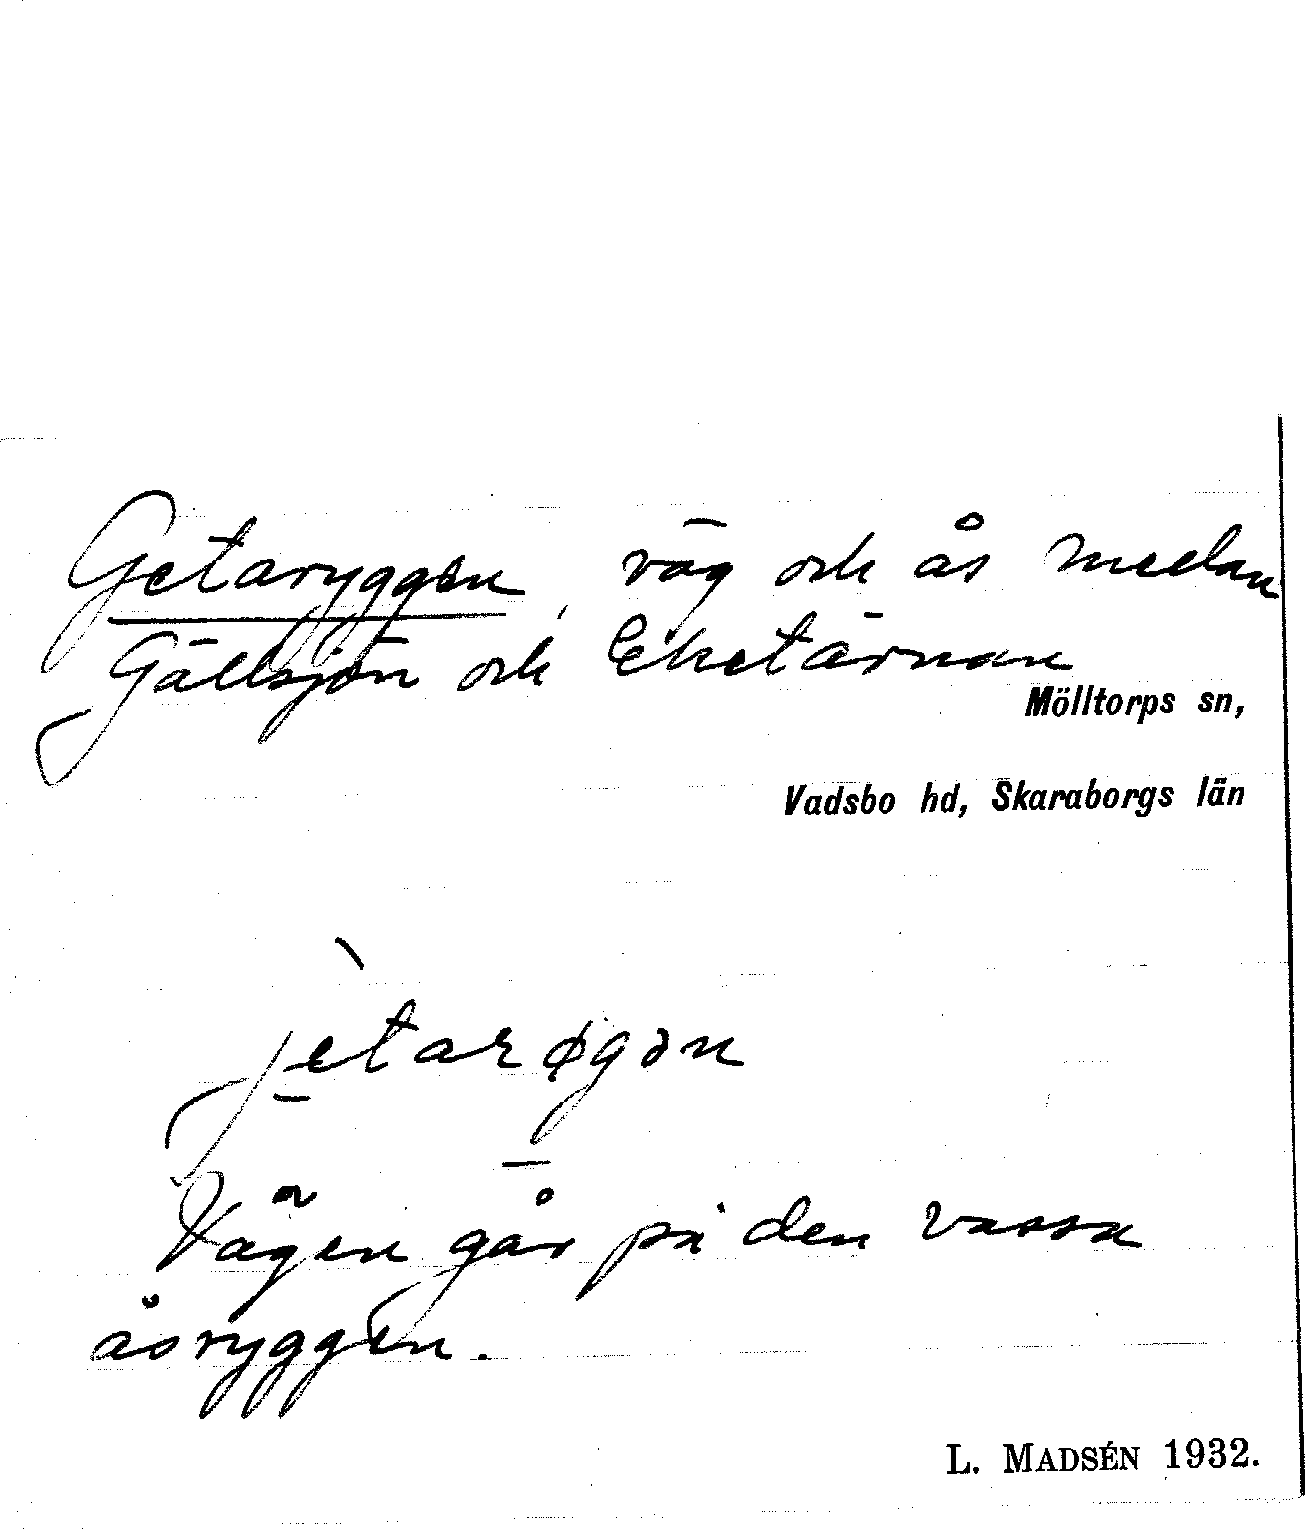 Getaryggen, väg och ås mellan
Gällsjön och Eketärnan
Mölltorps sn,
Vadsbo hd, Skaraborgs län
jètarøgən
Vägen går på den vassa
åsryggen.
L. MADSÉN 1932.